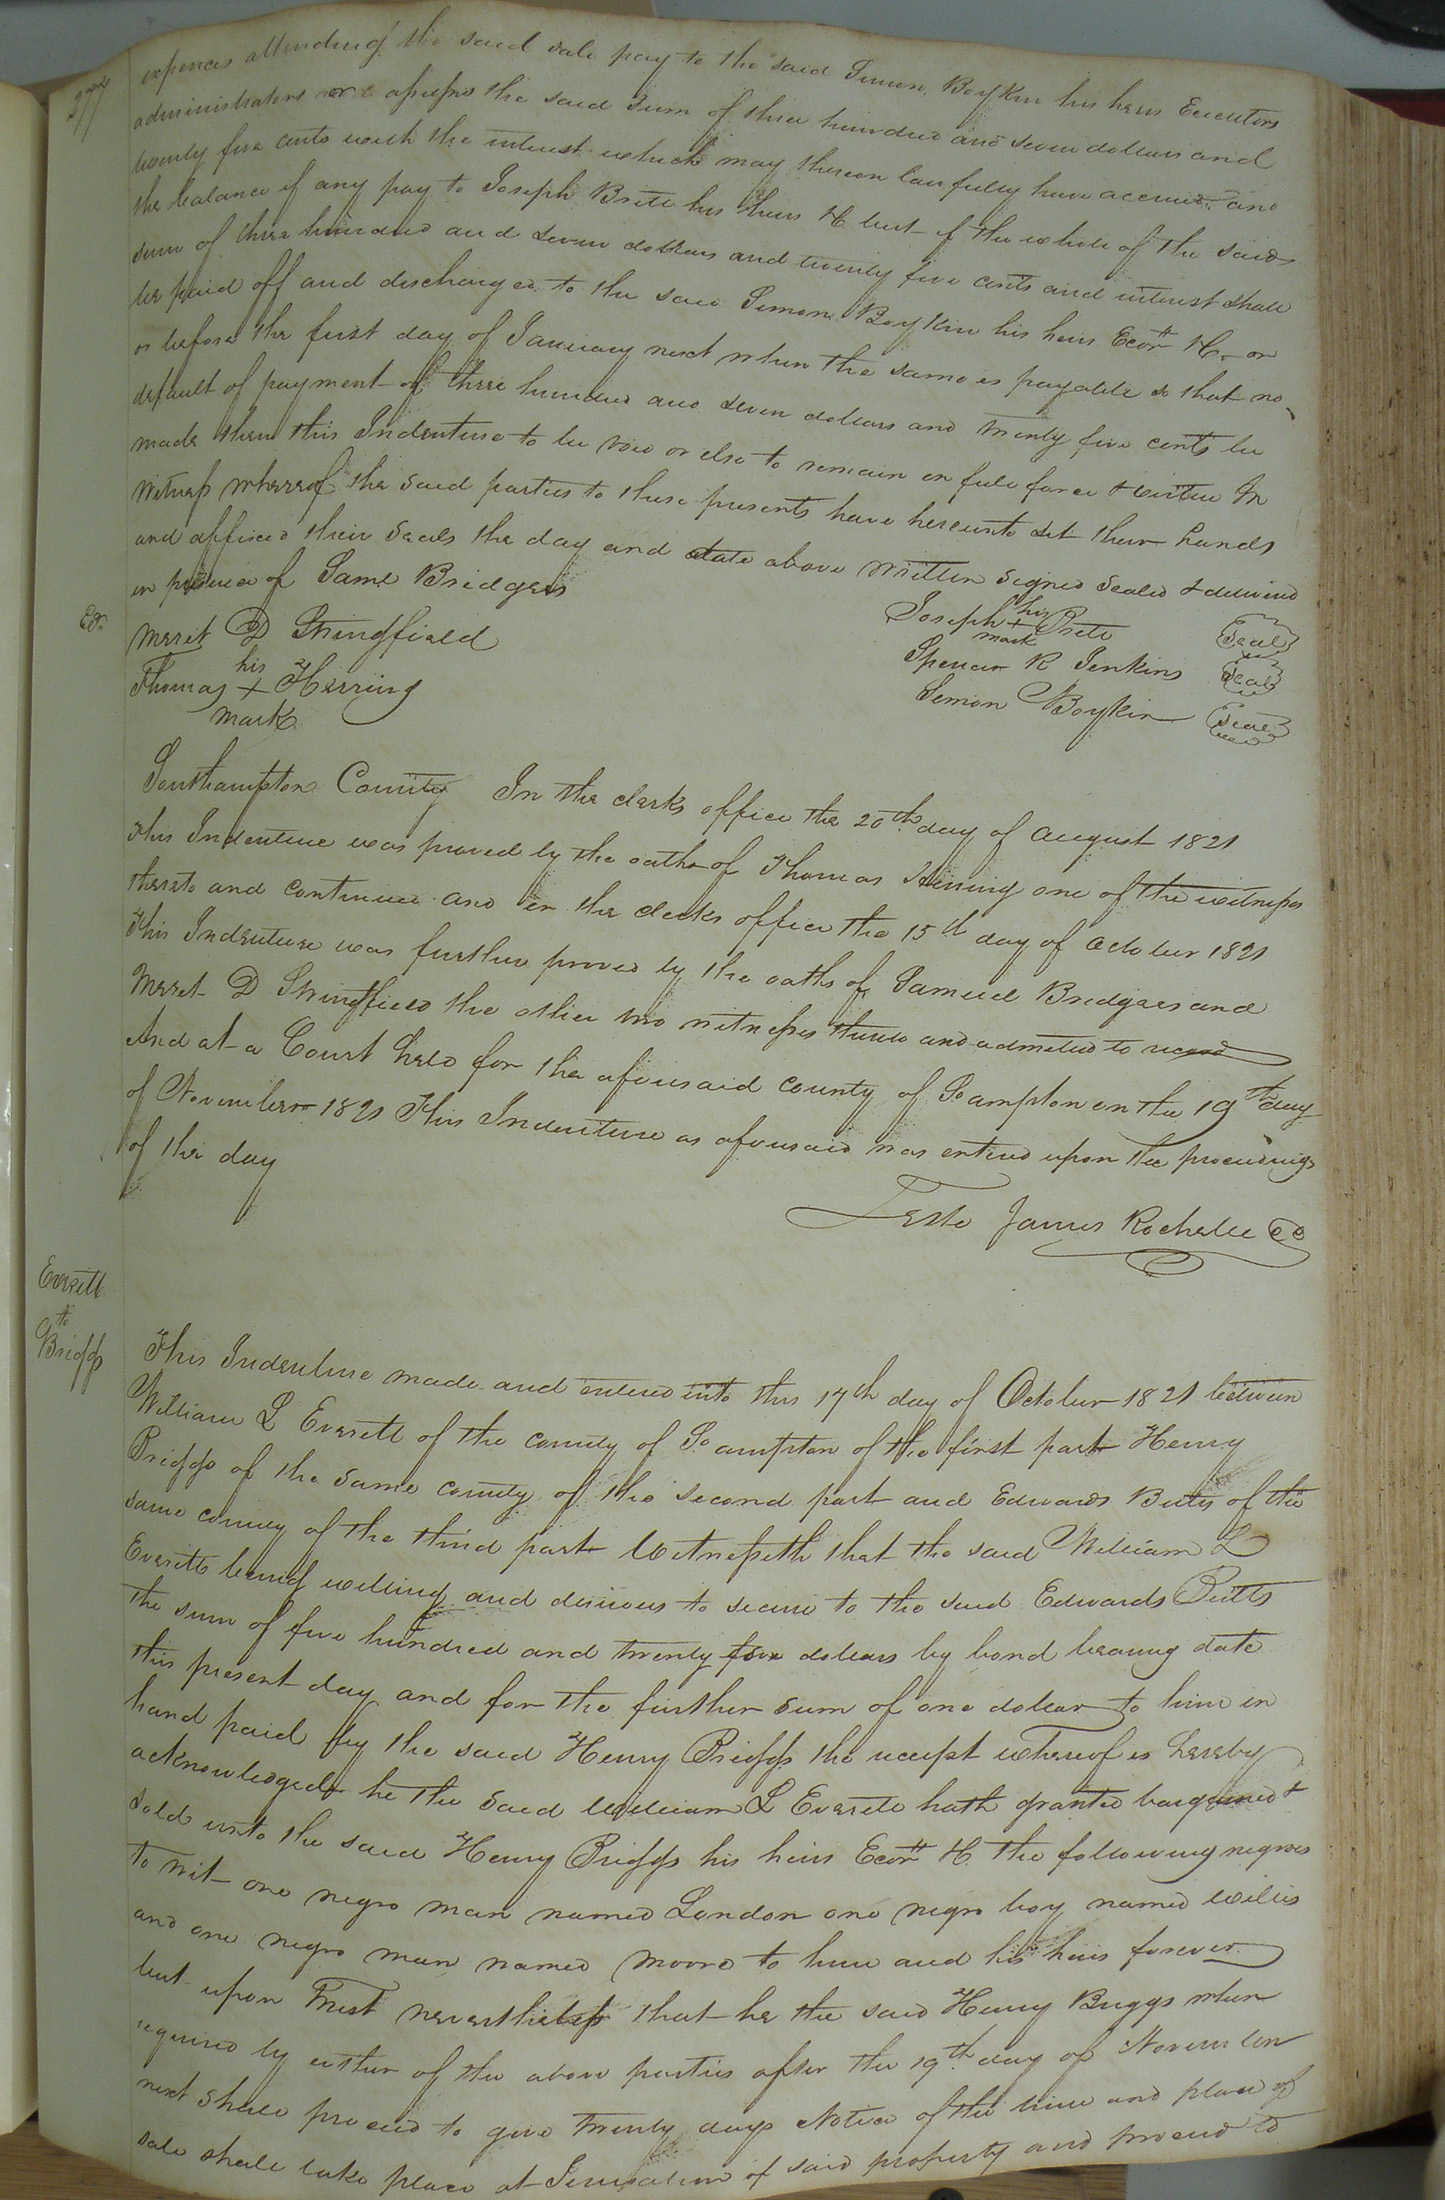 277
expences attending the said sale pay to the said Simon Boykin his heirs Executors
administrators or assigns the said sum of three hundred and seven dollars and
twenty five cents with the interest which may thereon lawfully have accrued and
the balance if any pay to Joseph Brett his heirs &c but if the whole of the said
sum of three hundred and seven dollars and twenty five cents and interest shall
be paid off and discharged to the said Simon Boykin his heirs Exors &c on
or before the first day of January next when the same is payable so that no
default of payment of three hundred and seven dollars and twenty five cents be
made then this Indenture to be void or else to remain in full force & virtue In
witness whereof the said parties to these presents have hereunto set their hands
and affixed their seals the day and date above written signed sealed & delivered
in presence of Saml Bridgers
Merit D Stringfield
Thomas his + mark Herring
Joseph his + mark Brett Seal
Spencer R Jenkins Seal
Simon Boykin Seal
Southampton County In the clerks office the 20th day of August 1821
This Indenture was proved by the oaths of Thomas Herring one of the witnesses
thereto and continued and in the clerks office the 15th day of October 1821
This Indenture was further proved by the oaths of Samuel Bridgers and
Merret D Stringfield the other two witnesses thereto and admitted to record
And at a Court held for the aforesaid county of So ampton on the 19th day
of November 1821 This Indenture as aforesaid was entered upon the proceedings
of the day
Teste James Rochelle CC
Everett
to
Briggs
This Indenture made and entered into this 17th day of October 1821 between
William L Everett of the county of So ampton of the first part Henry
Briggs of the same county of the second part and Edwards Butts of the
same county of the third part Witnesseth that the said William L
Everett being willing and desirous to secure to the said Edwards Butts
the sum of five hundred and twenty dollars by bond bearing date
this present day and for the further sum of one dollar to him in
hand paid by the said Henry Briggs the receipt whereof is hereby
acknowledged he the said William L Everett hath granted bargained &
sold unto the said Henry Briggs his heirs Exors &c the following negroes
to wit one negro man named London one negro boy named Willis
and one negro man named Moore to him and his heirs forever
but upon Trust nevertheless that he the said Henry Briggs when
required by either of the above parties after the 19th day of November
next shall proceed to give twenty days Notice of the time and place of
sale shall take place at Jerusalem of said property and proceed to